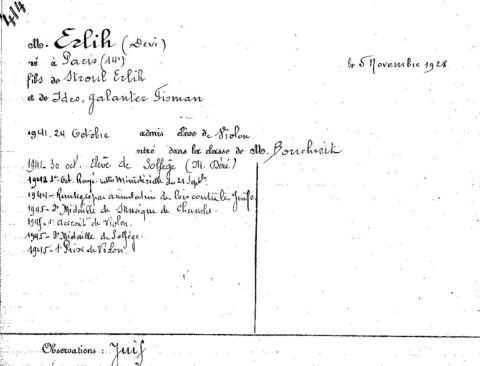 414
M. Erlih (Devi)
né à Paris (14e) le 5 Novembre 1928
fils de Stroul Erlik
et de Ides, Galanter Fisman
1941. 24 Octobre admis élève de Violon
entré dans la classe de M. Boucherit
1941. 30 oct. Elève de Solfège (M. Déré)
1942 1er Oct. Rayé Ministérielle du 21 Sept.
1944 - Réintégré par annulation de lois contre les Juifs
1945 - 2e Médaille de Musique de Chambre
1945 - 1er accessit de Violon
1945 - 2e Médaille de Solfège
1945 - 1er Prix de Violon
Observations : Juif